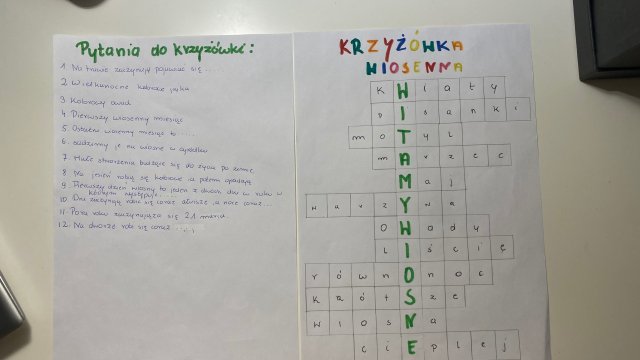 Pytania do krzyżówki:
1. Na trawie zaczynają pojawiać się .....
2. Wielkanocne kolorowe jajka
3. Kolorowy owad
4. Pierwszy wiosenny miesiąc
5. Ostatni wiosenny miesiąc to .....
6. sadzimy je na wiosnę w ogródku
7. Małe stworzenia budzące się do życia po zimie
8. Na jesień robią się kolorowe a potem opadają
9. Pierwszy dzień wiosny to jeden z dwóch dni w roku w którym występuje...
10. Dni zaczynają robić się coraz dłuższe, a noce coraz...
11. Pora roku zaczynająca się 21 marca.
12. Na dworze robi się coraz .....
KRZYŻÓWKA
WIOSENNA
kWiaty
pIsanki
moTyl
mArzec
Maj
warzYwa
OWady
lIście
równOnoc
króTSze
wiosNa
ciEplej